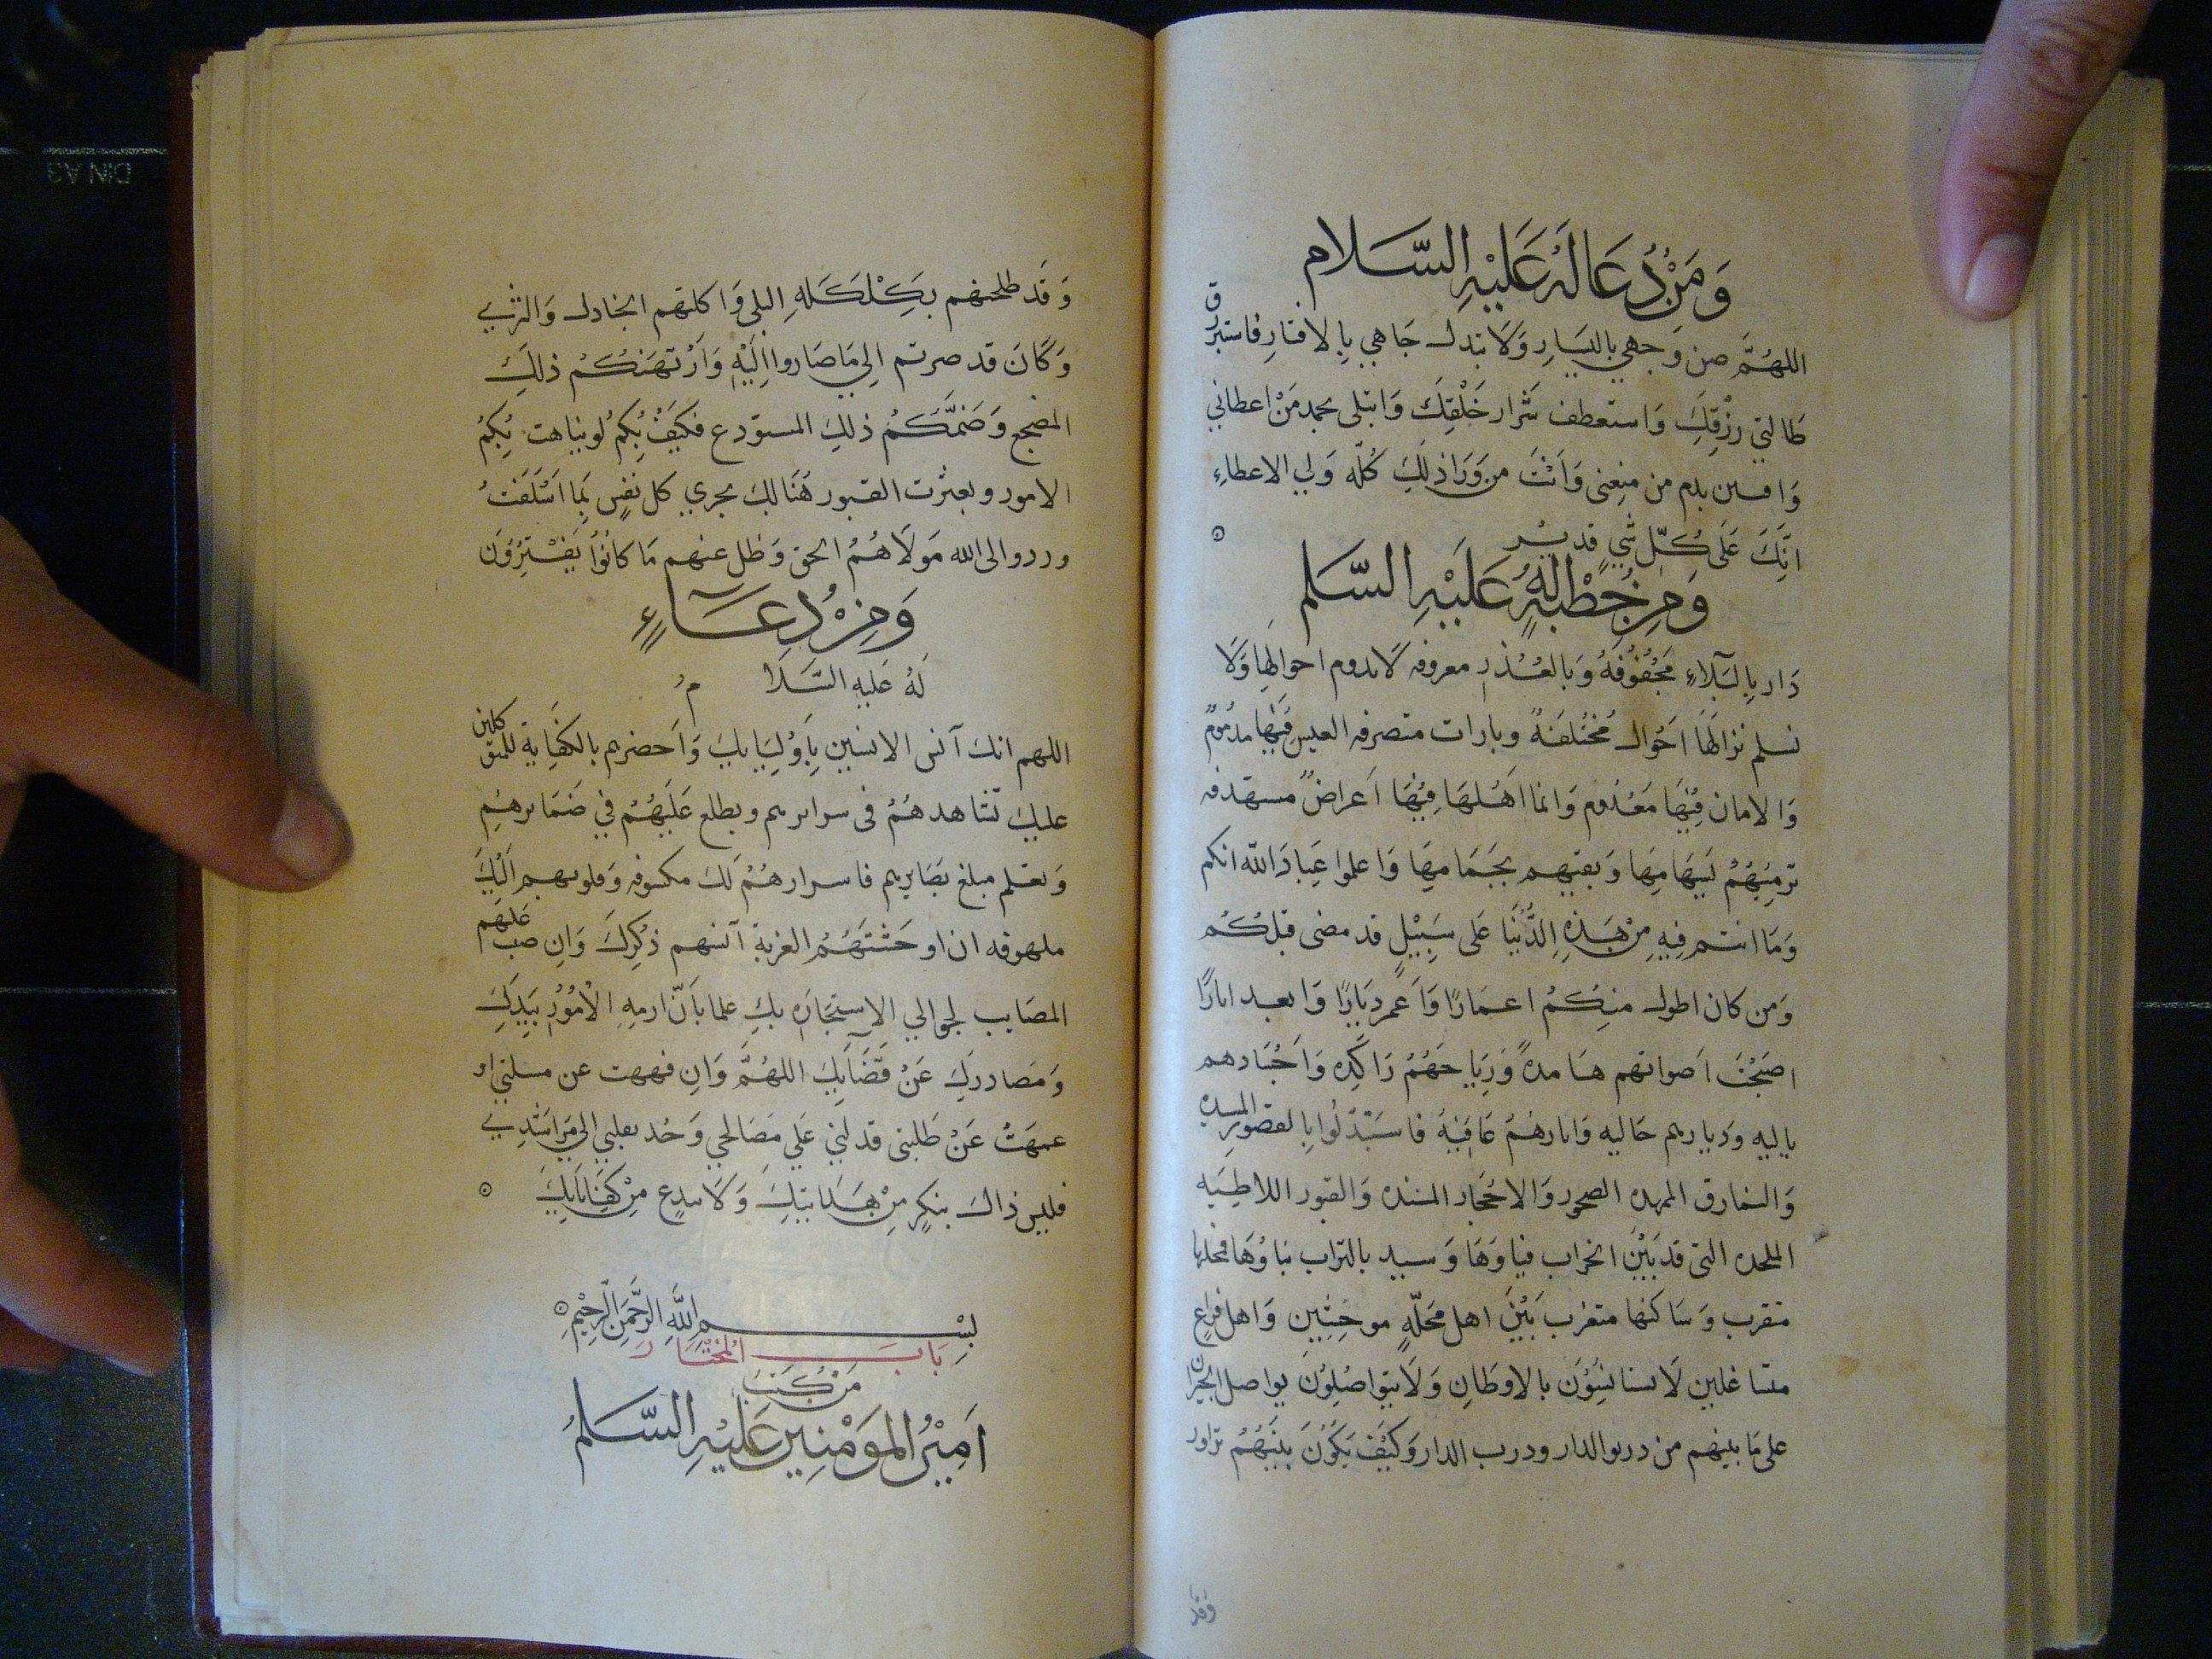 وَمَنْ دُعَا لَهُ عَلَيْهِ السَّلام
اللهُمَّ صن وَجهي باليَسَارِ وَلَا تبدل جَاهي بِالاقتارِ فاسترزق
طَالبي رزْقِكَ وَاستعطف شَرَار خَلْقِكَ وَابتلى بحمد مَنْ اعطاني
وَافتتن بذم من منعنى وَاَنْتَ من وَرَا ذلِكَ كُلّه وَلي الاعطاءِ
انَّكَ عَلى كُلِّ شَيٍ قديْر
وَمِنْ خُطْبَةٍ لَهُ عَلَيْهِ السَّلم
دَار بِالبَلَاءِ مَحْفُوْفَةُ وَبالغُدْر معروفه لَا يدوم احوالهَا وَلَا
تسلم نزالهَا اَحْوَال مُخْتُلفَةُ وتارات متصرفه العيس فِيْهَا مذمُوم
وَالامان فِيْهَا مَعْدُوم وَانما اَهْلهَا فِيْهَا اَعراضُ مستهدفه
ترمِيْهِمْ بَسِهَامِهَا وَتفنيهم بحَمَامِهَا وَاعلموا عِبَادَ الله انكم
وَمَا انتم فِيهِ مِنْ هَذِهِ الدُّنْيَا عَلى سَبِيْلٍ قد مضى قبلكُم
وَمن كان اطول منِكُمُ اعمَارًا وَاَعَمر دِيَارًا وَابعد اثارًا
اصبَحْتَ اَصواتهم هَامدة وَرِيَاحَهُمُ رَاكِده وَاَجْسَادهم
باليه وديارهم خَاليه وَاثارهُمْ عَافِيَةُ فاسَتبدَلُوا بِالقصُورِ المشيده
وَالنمارق الممهده الصخور وَالاحْجَار المسنده وَالقبور اللاطِئيَه
الملحده التى قد بَيْنَ الخراب فنِاوَهَا وَسيد بالتراب بناوُهَا فمحلها
مقترب وَسَاكنها مغترب بَيْنَ اهل مَحَلّهٍ موحِشِينِ وَاهل فراغٍ
متشاغلين لَا يستانِسُوْنَ بالاوطَانِ وَلَا يتواصُلِوُن تواصل الجيران
على مَا بينهم من دنو الدار وقرب الدار وَكَيْفَ يَكُوْنَ بينَهُمُ تزاور
وقد
وَقَد طلحنهم بكِلْكَلهِ البلى وَاكلتهم الجنادل وَالثرى
وَكَانَ قد صرتم الى مَا صَاروا اِلَيْهِ وَاَرْتهَنكُمُ ذلِكَ
المضجع وَضَمَّكُمُ ذلِكَ المستودع فكَيَفَ بُكِمُ لو تناهت بُكِمُ
الامور وبعثرت القبور هُنَالكَ يجرى كل نفسٍ بِمَا اسَلَفَتْ
وردوا الى الله مَولَاهُمُ الحق وَظل عنهم مَا كانُوْا يَفْتِرُوْنَ
وَمِنْ دُعَاءٍ
لَهُ عَليهِ السَّلَام
اللهم انكَ آنس الانسين بِاَوُلِيَايكَ وَاَحضرهم بالكفَايةِ للمتوكلين
عليك تشَاهدهُمْ فى سرايرهم وتطلع عَلَيهُمْ في ضَمَايرهِمِ
وَتعلم مبلغ بصَايرهم فاسرارهُمْ لَكَ مكشوفه وَقلوبهم اَلَيْكَ
ملهوفه ان اوحَشتَهُمُ الغربة آنستهم ذكْرِكَ وَان صبت عَليهم
المصَايب لجوا الي الاستِجَارَه بكِ علما باَنّ ازمهِ الامُوُرْ بَيِدَكَ
وَمصَادرهَا عَنْ قَضَايَكِ اللهُمَّ وَانِ فههت عن مسلتي او
عمهَتْ عَنْ طَلبتى فدلني عَلي مصَالحي وَخذ بقلبي الي مَرَاشِدِي
فليس ذاك بنكرٍ مِنْ هَدَايتِكَ وَلَا ببدع مِنْ كفَايَاتِكَ
بِسْمِ اللَّهِ الرَّحْمَنِ الرَّحِيْمِ
بَابَ المُخْتَار
مَن كُتبَ
اَمِيْرُ المؤمنِيِن عَلَيْهِ السَّلمُ